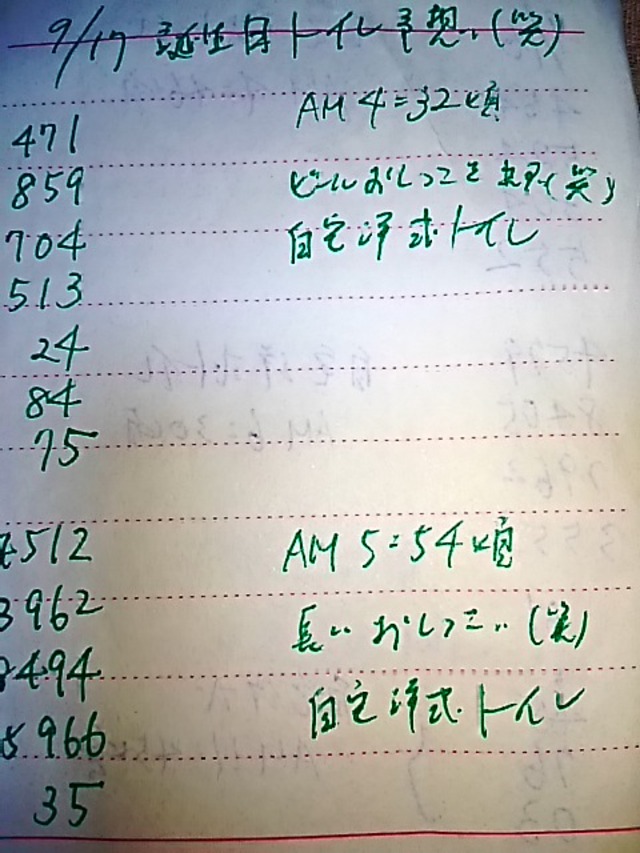 9/17 誕生日トイレ予想、(笑)
AM 4:32頃
471
859 ビールおしっこを (笑)
704 自宅洋式トイレ
513
24
84
75
512 AM 5:54頃
3962 長いおしっこ、(笑)
8494 自宅洋式トイレ
966
35